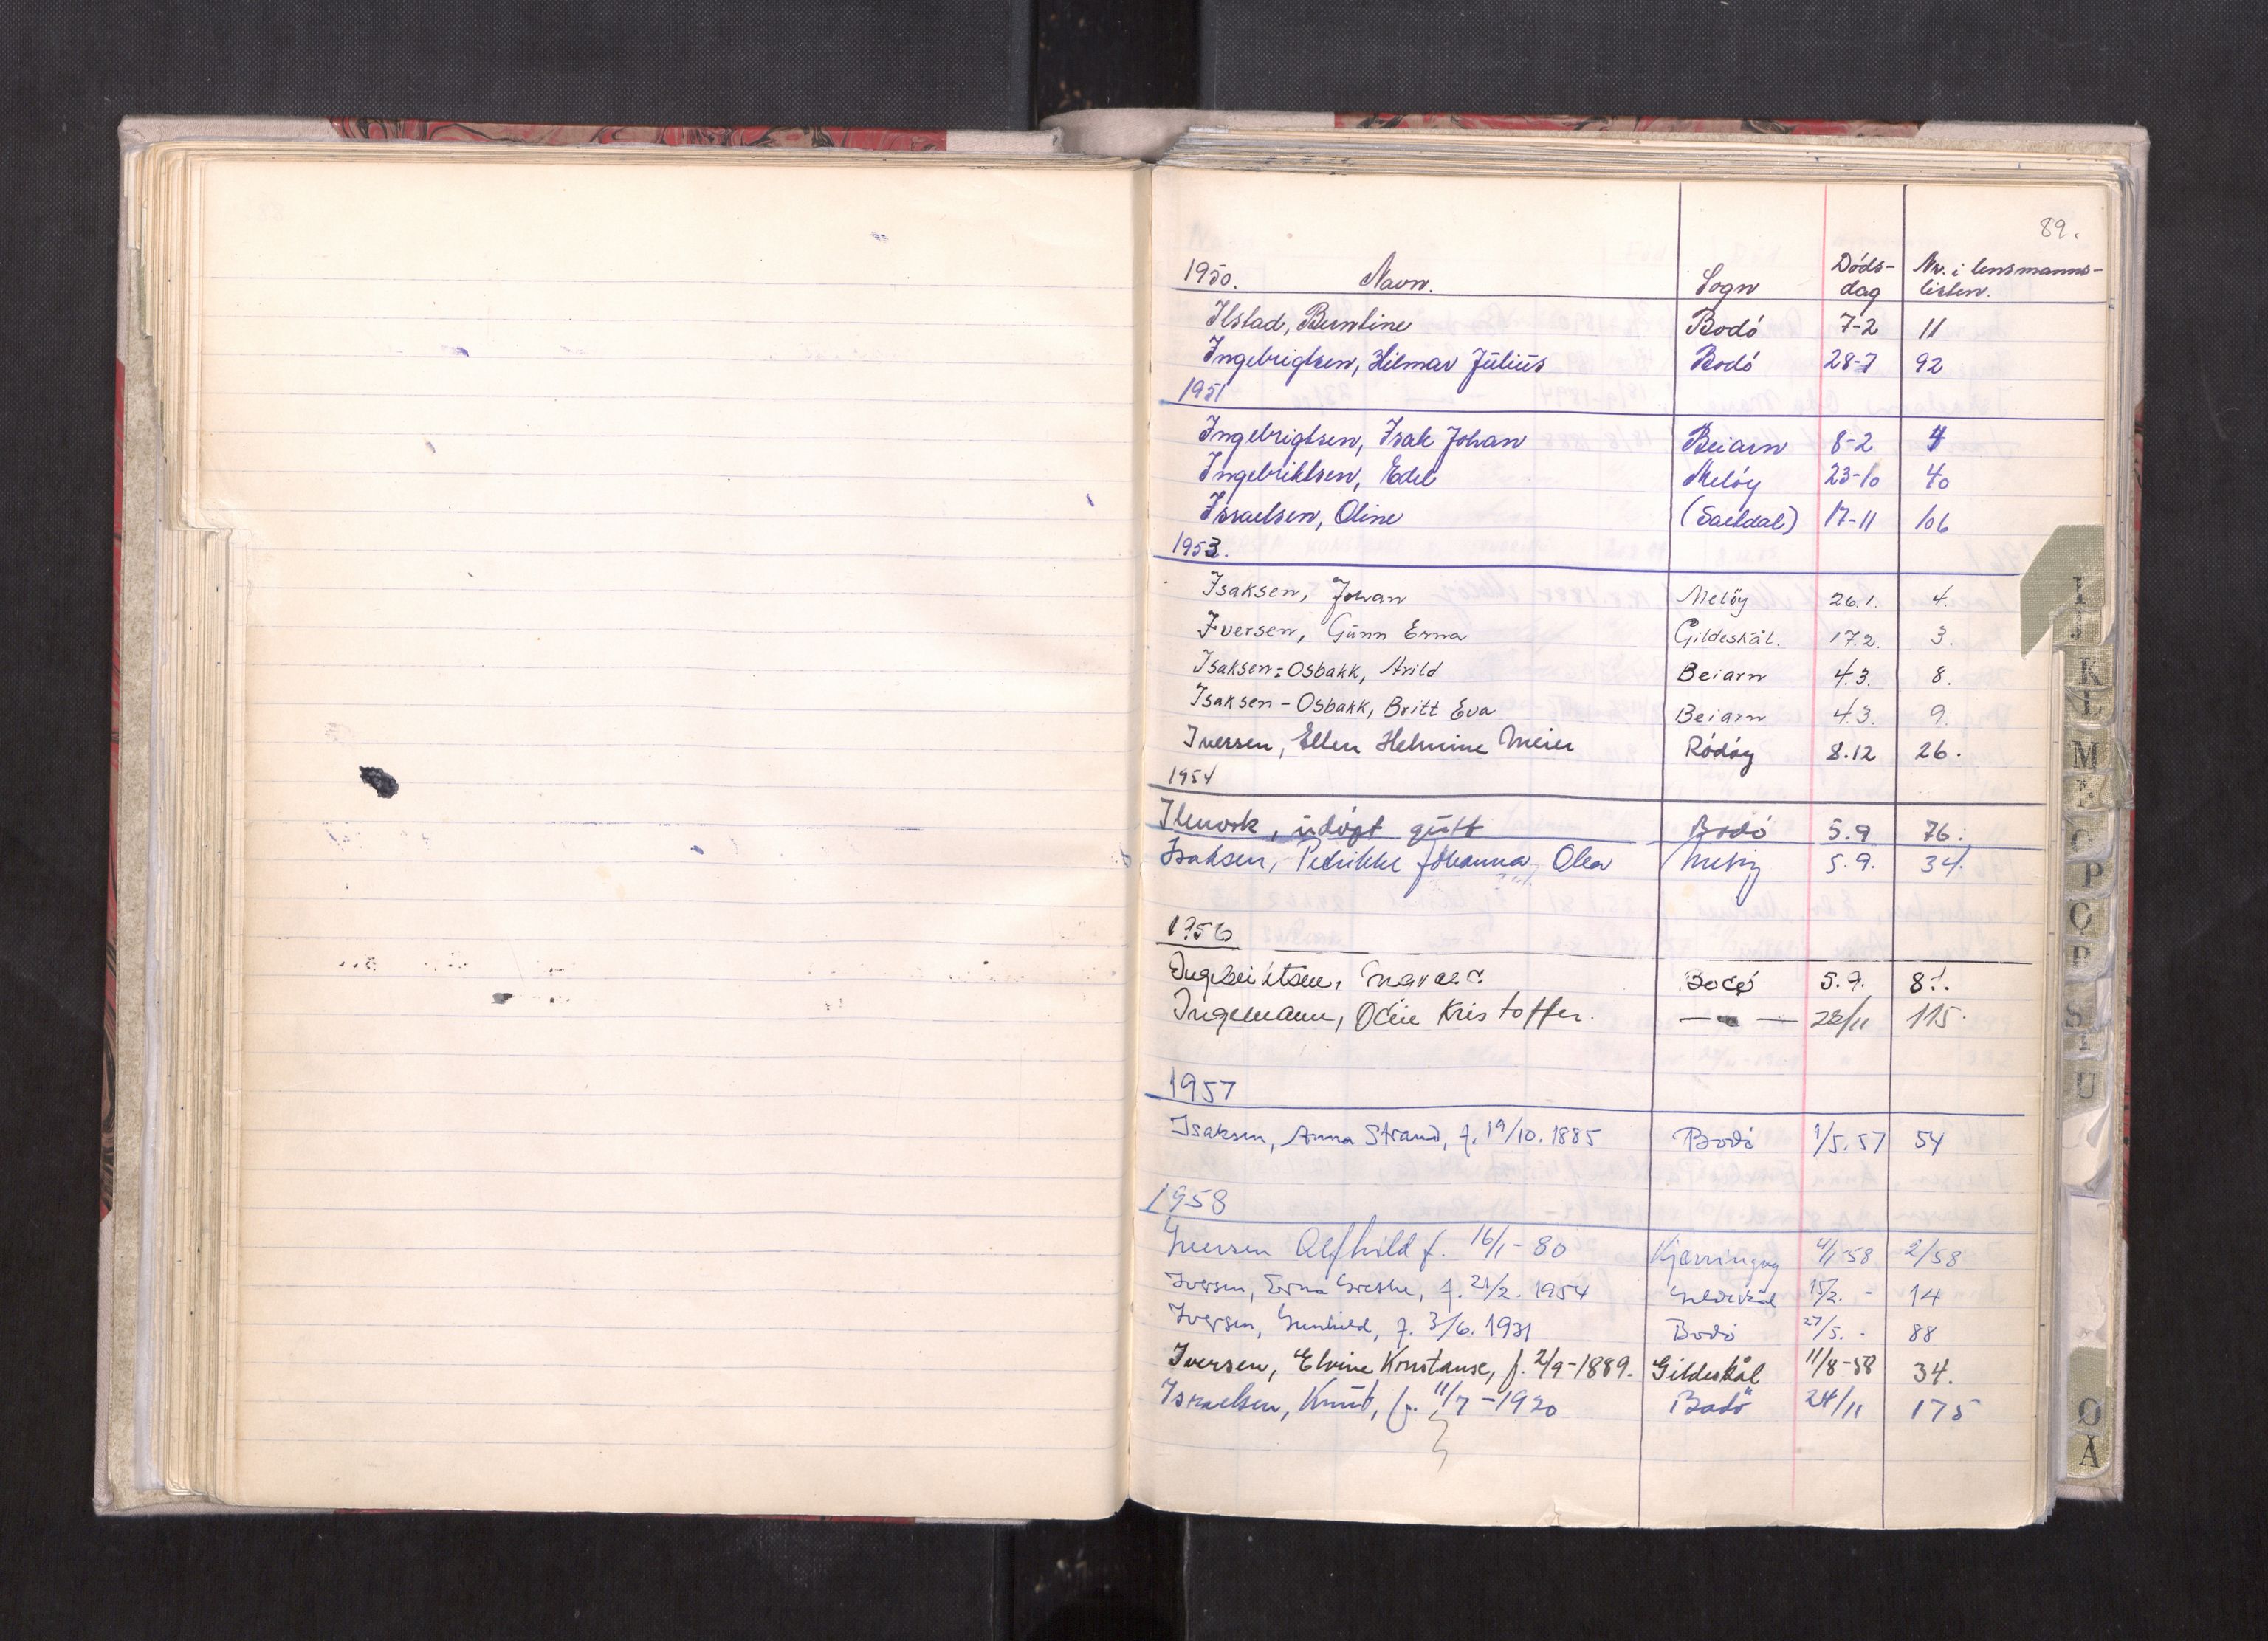 89.
1950. Navn. Sogn Døds-dag Nr. i lensmanns-listen.
Ilstad, Berntine Bodó 7-2 11
Ingebrigtsen, Hilmar Júliús Bodó 28-7 92
1951
Ingebrigtsen, Isak Johan Beiarn 8-2 4
Ingebriktsen, Edel Melöy 23-10 40
Israelsen, Oline (Saltdal) 17-11 106
1953.
Isaksen, Johan Melöy 26.1. 4.
Iversen, Gúnn Erna Gildeskål. 17.2. 3.
Isaksen-Osbakk, Arild Beiarn 4.3. 8.
Isaksen-Osbakk, Britt Eva Beiarn 4.3. 9.
Iversen, Ellen Helmine Meier Ródóy 8.12 26.
1954
údöpt gútt Bodó 5.9 76.
Isaksen, Petrikke Johanna Olea Melöy 5.9. 34.
1956
Bodó 5.9.
Ingemann, Kristoffer. — " — 28/11 115.
1957
Isaksen, Anna Strand, f. 19/10. 1885 Bodö 1/5. 57 54
1958
Iversen Alfhild f. 16/1-80 Kjerringøy 4/1-58 2/58
Iversen, Erna Grethe, f. 21/2. 1954 Gildeskål 15/2. - 14
Iversen, Gunhild, f. 3/6. 1931 Bodö 27/5. - 88
Iversen, Elvine Konstanse, f. 2/9-1889. Gildeskål 11/8-58 34.
Israelsen, Knút, f. 11/7-1920 Bodö 24/11 175
I
J
K
L
M
N
O
P
R
S
T
U
Ø
Å